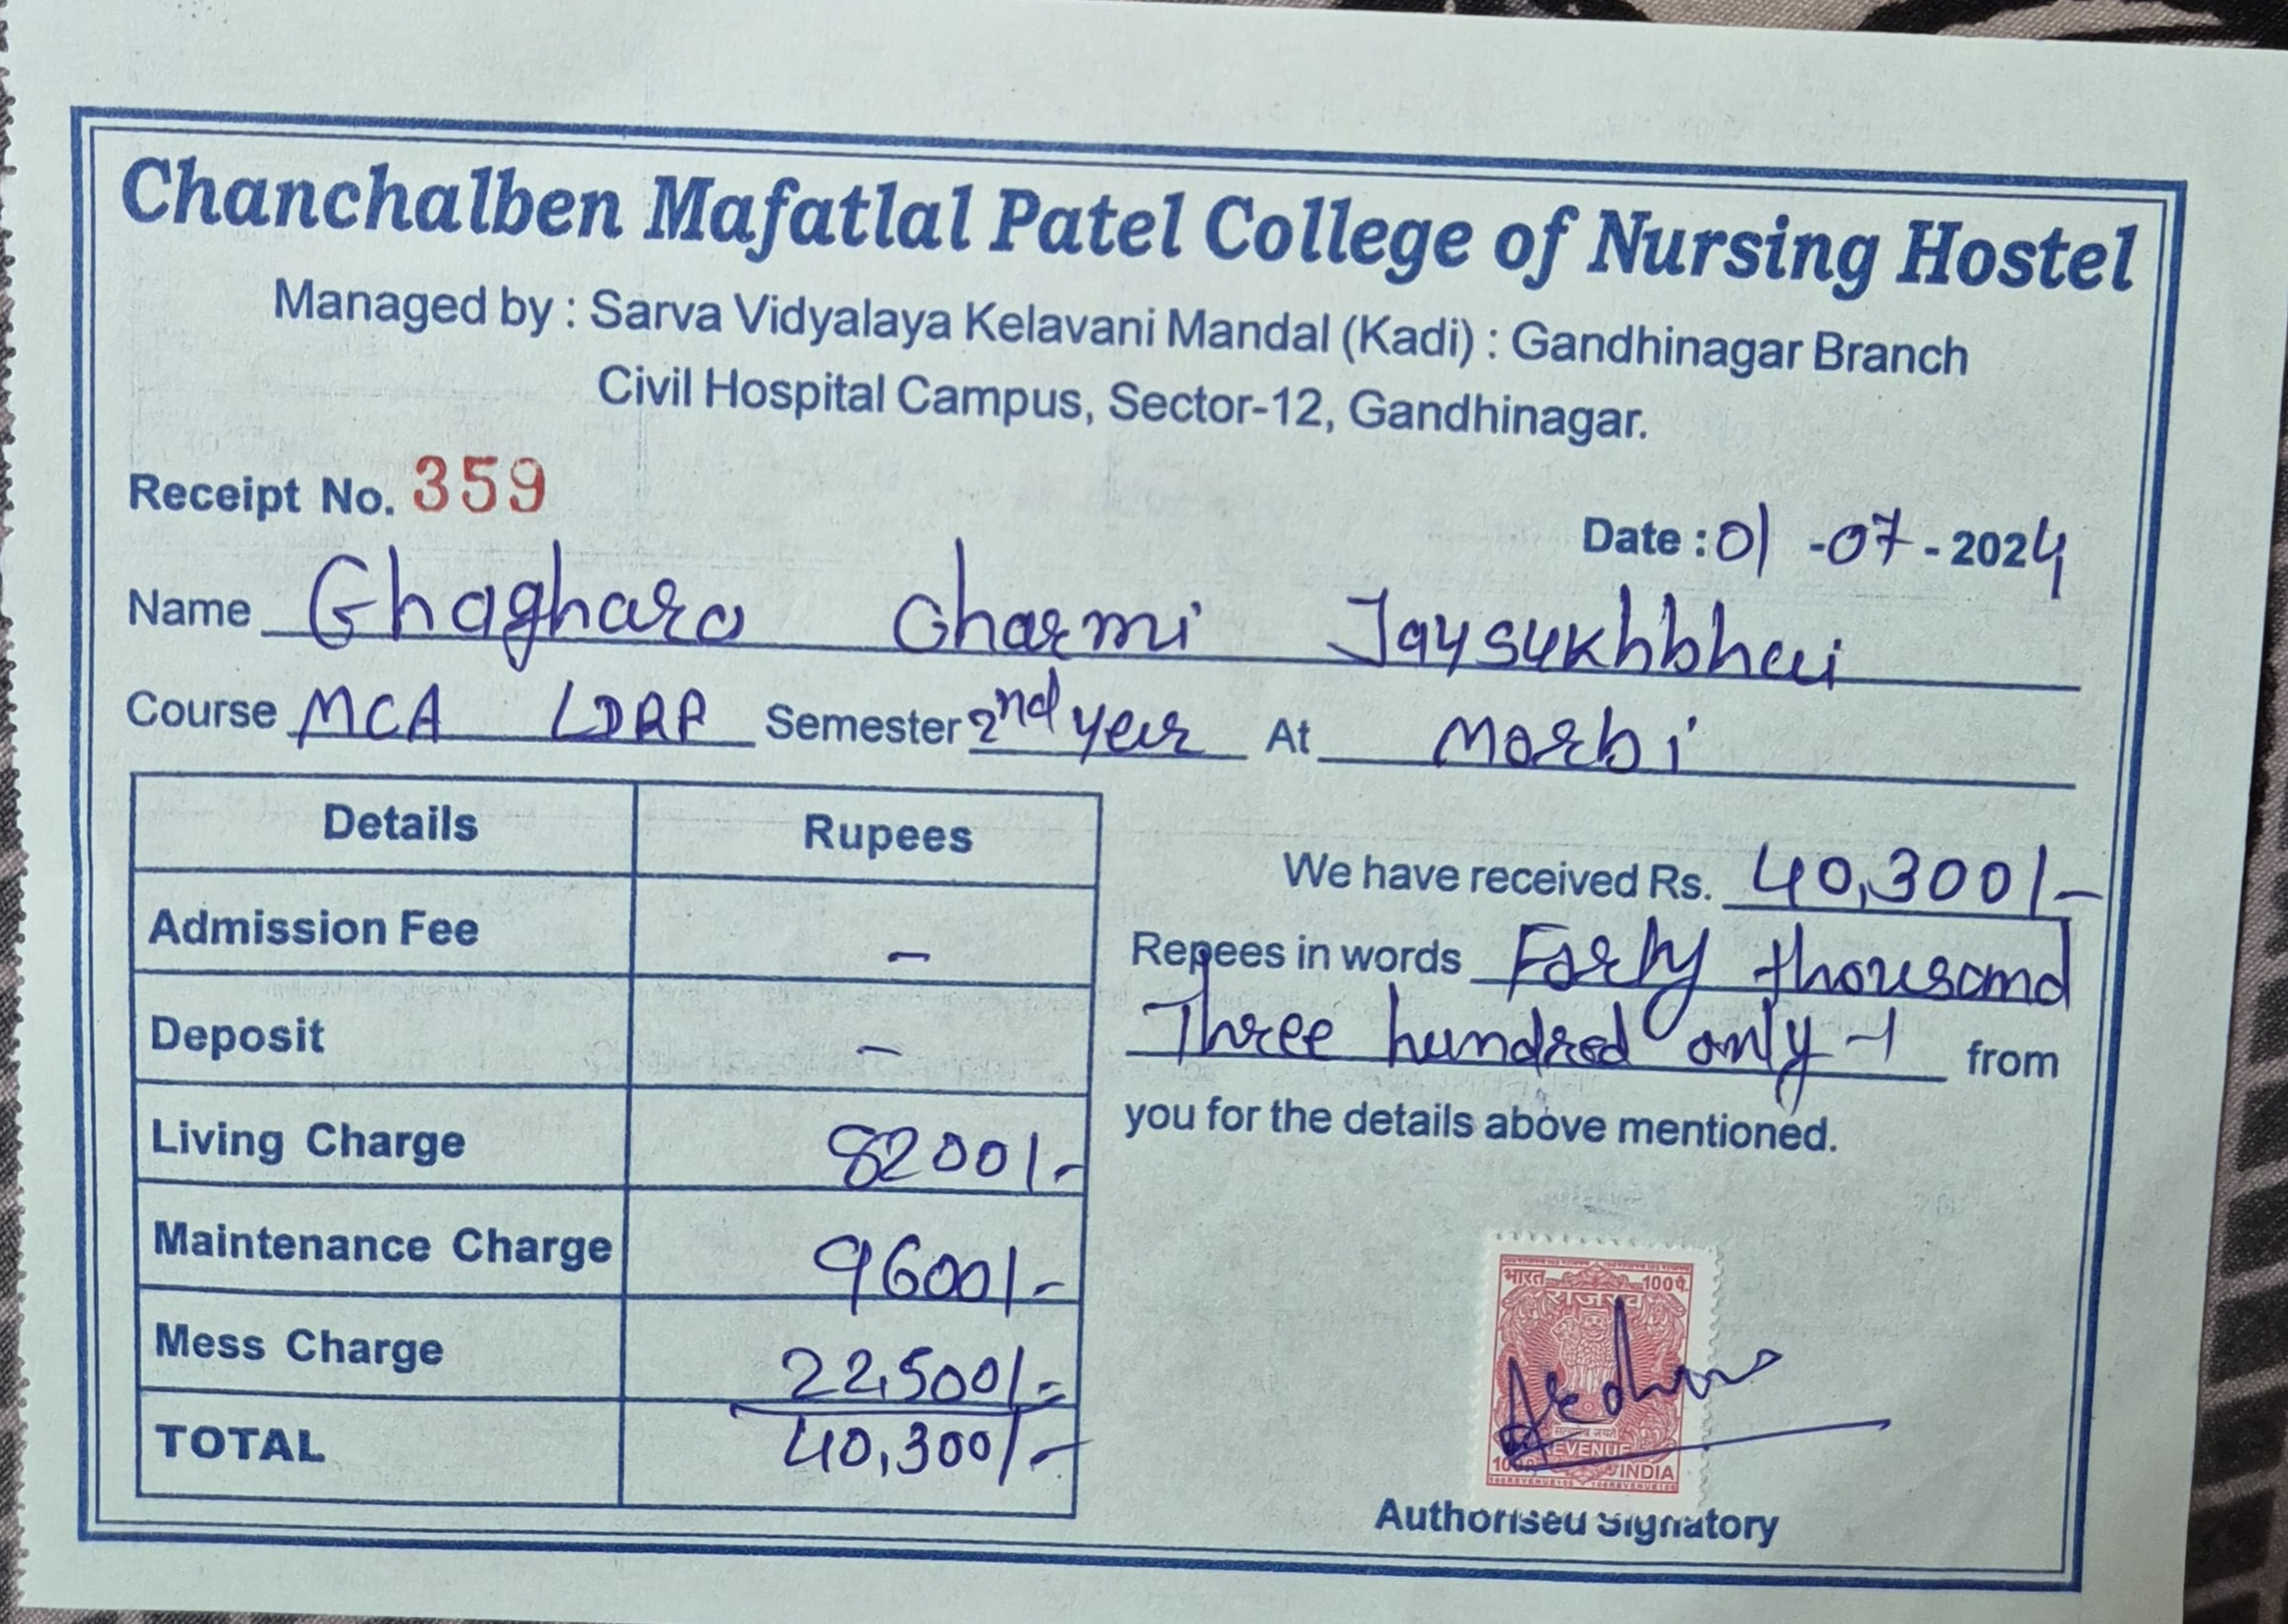 Chanchalben Mafatlal Patel College of Nursing Hostel
Managed by : Sarva Vidyalaya Kelavani Mandal (Kadi) : Gandhinagar Branch
Civil Hospital Campus, Sector-12, Gandhinagar.
Receipt No. 359
Date : 01 -07 - 2024
Name Ghaghara Charmi Jaysukhbhai
Course MCA LDRP Semester 2nd year At Morbi
Details Rupees
Admission Fee –
Deposit –
Living Charge 8200/-
Maintenance Charge 9600/-
Mess Charge 22,500/=
TOTAL 40,300/-
We have received Rs. 40,300/-
Repees in words Forty thousand
Three hundred only -/ from
you for the details above mentioned.
भारत 100पै.
राजस्व
सत्यमेव जयते
REVENUE
INDIA
Authorised Signatory